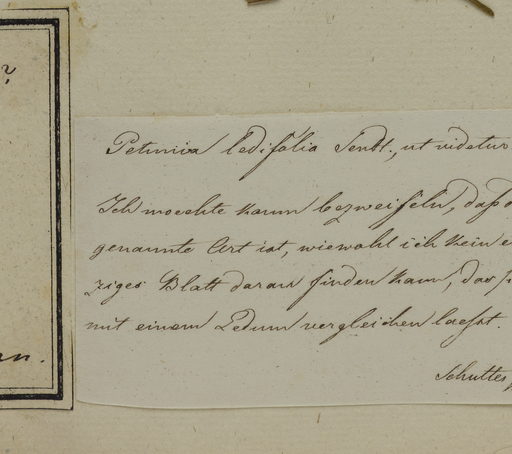 ?
Petunia ledifolia Sendt., ut videtur
Ich moechte kaum bezweifeln, daß d
genannte Art ist, wiewohl ich kein e
ziges Blatt daran finden kann, das s
mit einem Ledum vergleichen laesst.
Schultes